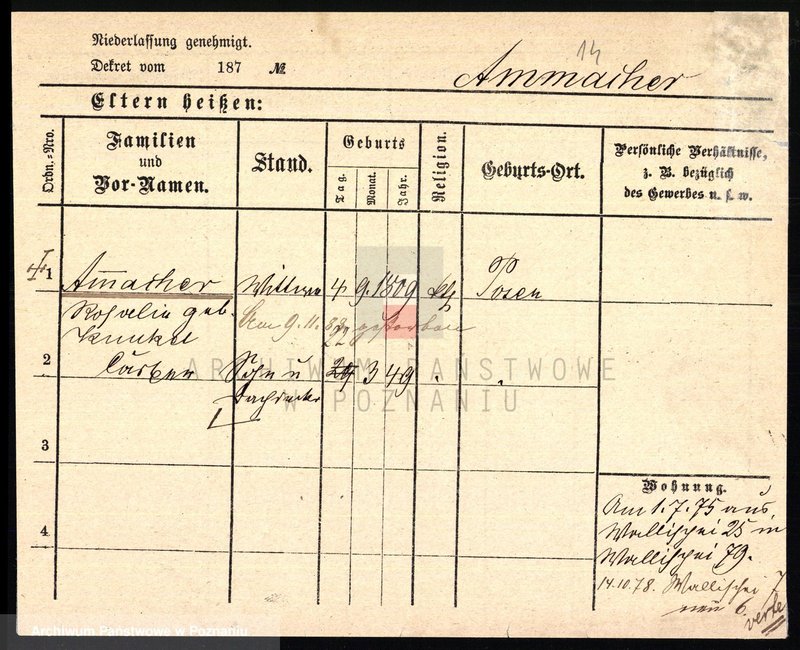 Niederlassung genehmigt.
Dekret vom 187 №
14
Ammacher
Eltern heißen:
Ordn.=Nro.
Familien
und
Vor-Namen.
Stand.
Geburts
Tag.
Monat.
Jahr.
Religion.
Geburts-Ort.
Persönliche Verhältnisse,
z. B. bezüglich
des Gewerbes u. s. w.
1 Am̅acher Wittwe 4 9. 1809 kth Posen
Rosalie geb.
Kunkel
Am 9. 11. 88 gestorben
22
2 Sohn u 24 3 49 " "
Dachdecker
3
4
Wohnung.
Am 1. 7. 75 aus
Wallischei 25 in
Wallischei 79.
14.10.78. Wallischei 7
neu 6.
verte
ARCHIWUM PAŃSTWOWE
W POZNANIU
Archiwum Państwowe w Poznaniu